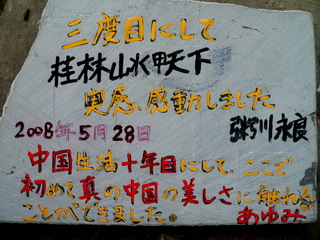 三度目にして
桂林山水甲天下
実感、感動しました
2008年5月28日 永良
中国生活十年目にして、ここで
初めて真の中国の美しさに触れる
ことができました。 あゆみ